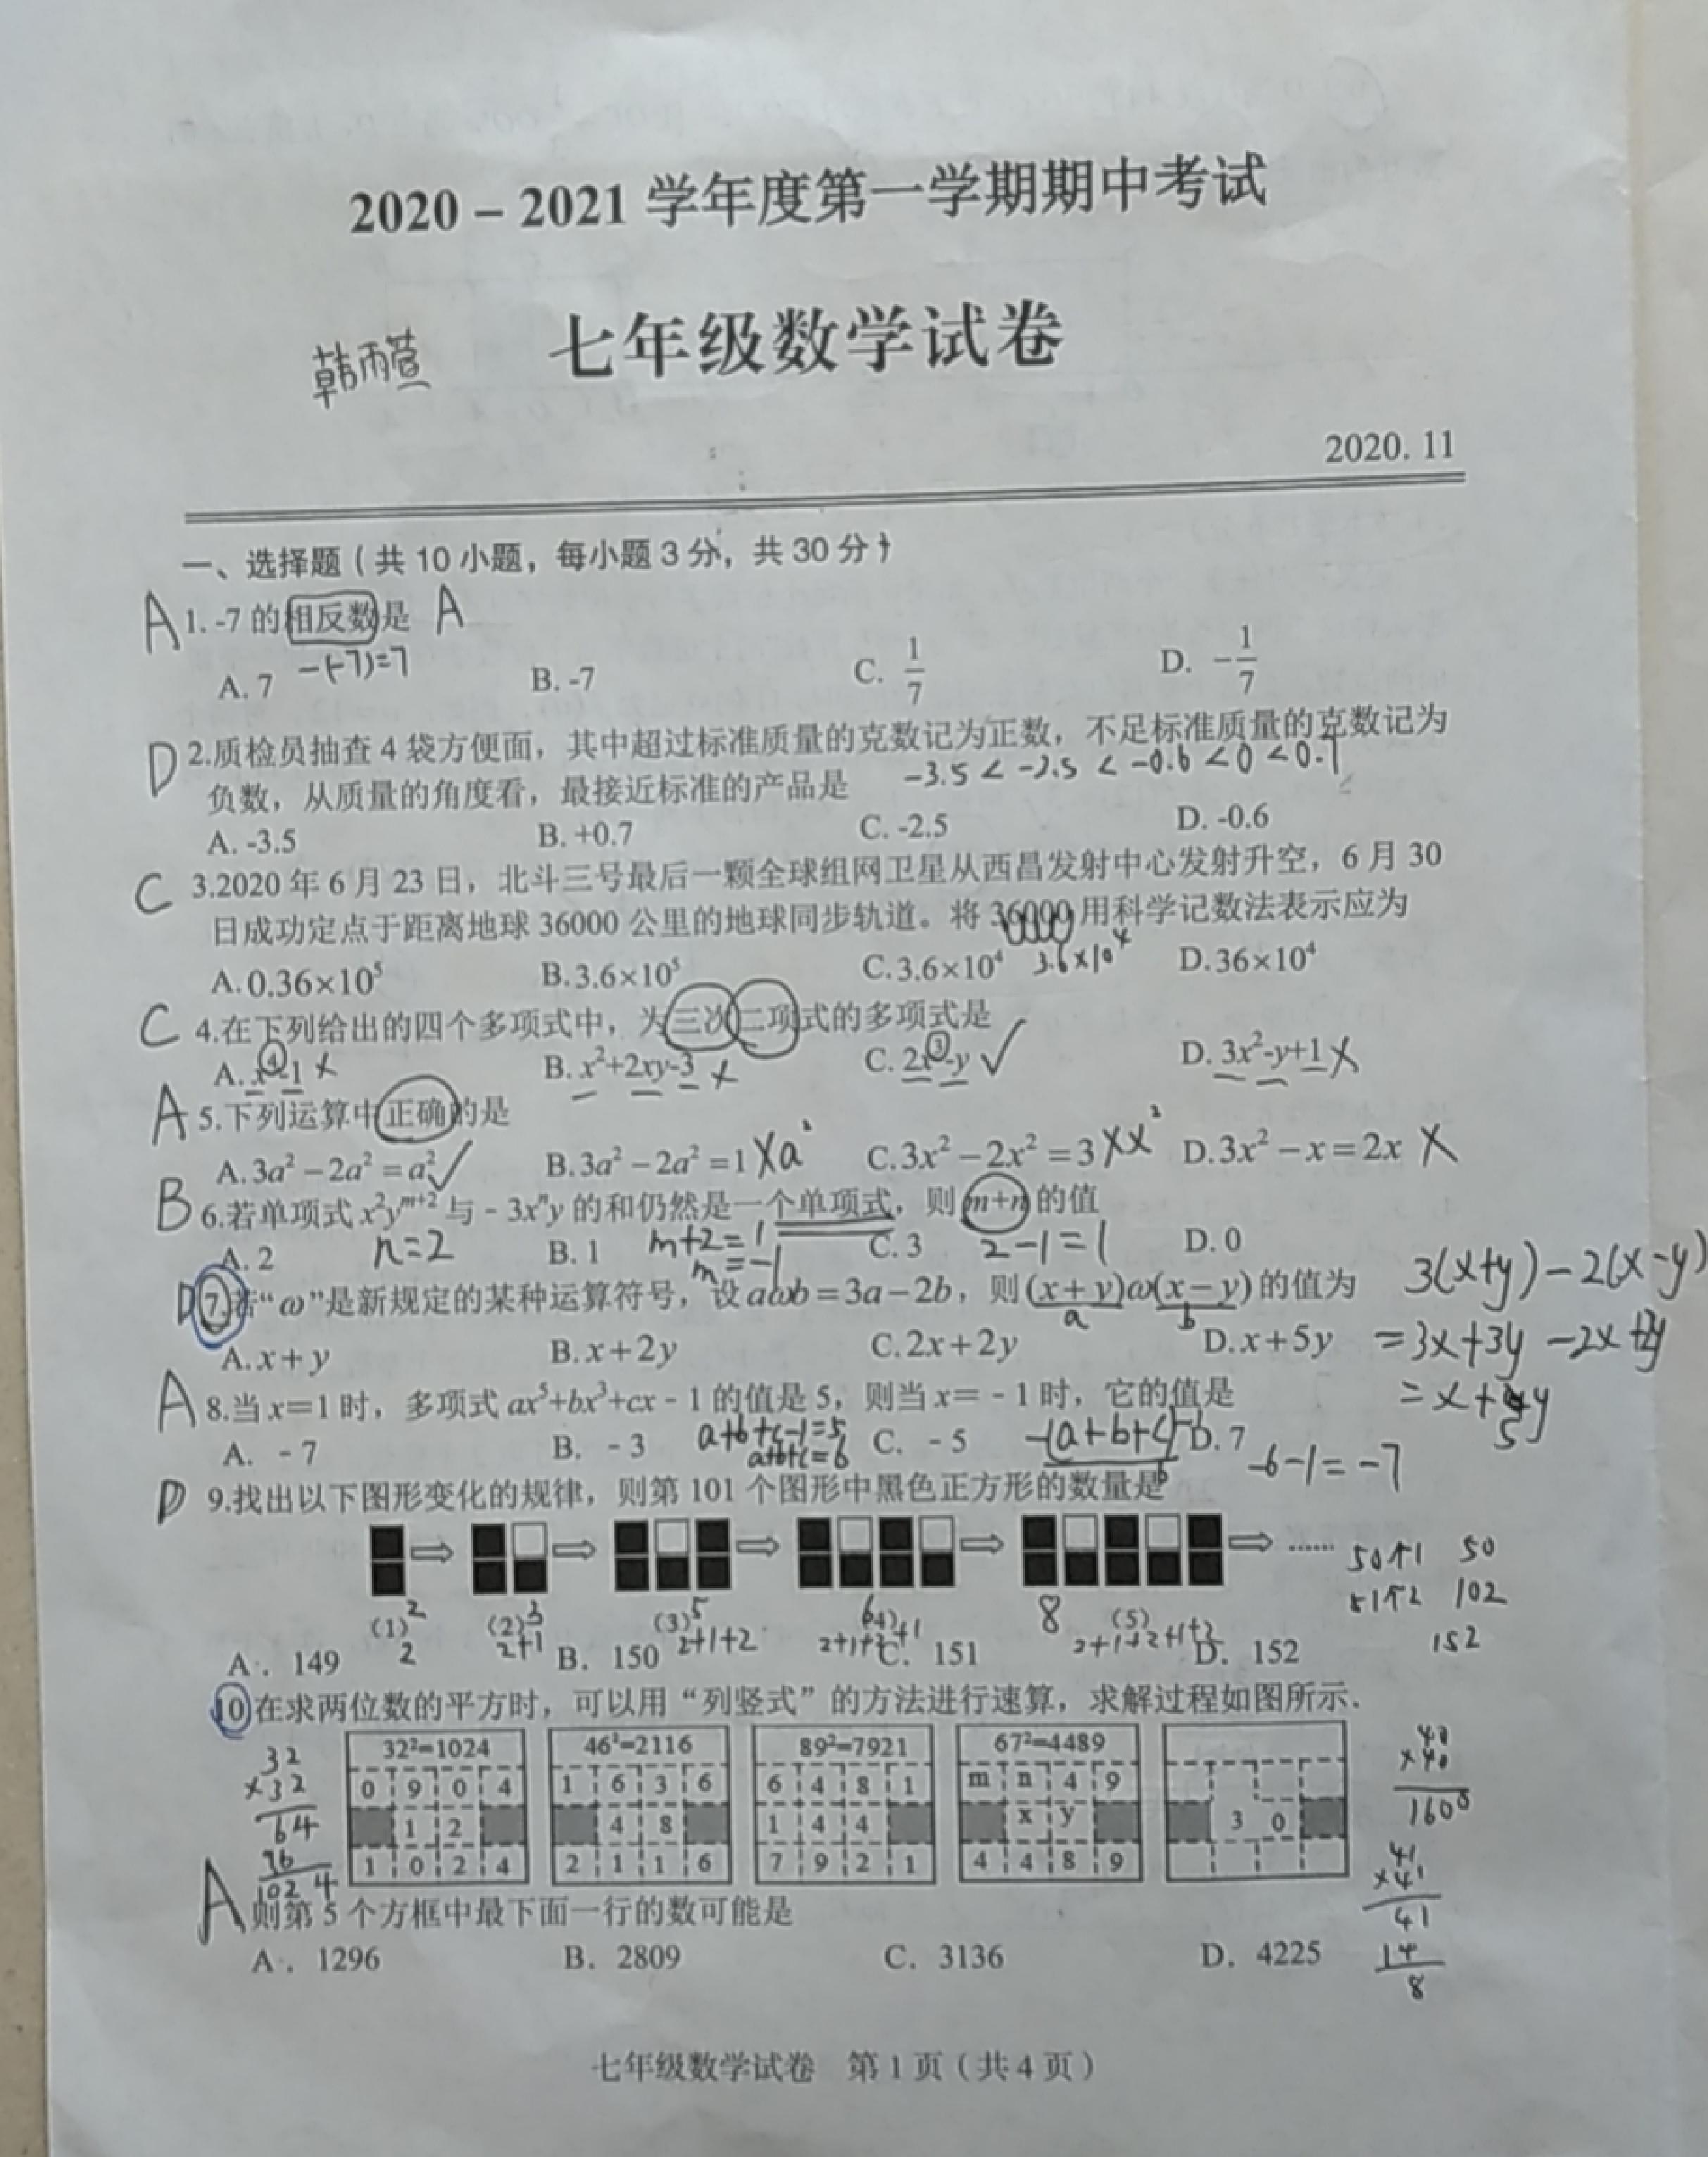 2020－2021 学年度第一学期期中考试
七年级数学试卷
韩雨萱
2020. 11
一、选择题（共 10 小题，每小题 3 分，共 30 分）
A 1. -7 的相反数是 A
A. 7 -(-7)=7 B. -7 C. 1/7 D. -1/7
D 2.质检员抽查 4 袋方便面，其中超过标准质量的克数记为正数，不足标准质量的克数记为
负数，从质量的角度看，最接近标准的产品是 -3.5 < -2.5 < -0.6 < 0 < 0.7
A. -3.5 B. +0.7 C. -2.5 D. -0.6
C 3.2020 年 6 月 23 日，北斗三号最后一颗全球组网卫星从西昌发射中心发射升空，6 月 30
日成功定点于距离地球 36000 公里的地球同步轨道。将 36000 用科学记数法表示应为
A. 0.36×10⁵ B. 3.6×10⁵ C. 3.6×10⁴ 3.6×10⁴ D. 36×10⁴
C 4.在下列给出的四个多项式中，为三次二项式的多项式是
A. x⁴-1 × B. x²+2xy-3 × C. 2x³-y √ D. 3x²-y+1 ×
A 5.下列运算中正确的是
A. 3a²－2a²＝a² √ B. 3a²－2a²＝1 × a² C. 3x²－2x²＝3 × x² D. 3x²－x＝2x ×
B 6.若单项式 x²yᵐ⁺² 与﹣3xⁿy 的和仍然是一个单项式，则 m+n 的值
A. 2 n=2 B. 1 m+2=1 C. 3 2-1=1 D. 0
m=-1
D 7.若“ω”是新规定的某种运算符号，设 aωb＝3a－2b，则 (x＋y)ω(x－y) 的值为 3(x+y)-2(x-y)
a b
A. x＋y B. x＋2y C. 2x＋2y D. x＋5y =3x+3y-2x+2y
=x+5y
A 8.当 x＝1 时，多项式 ax⁵+bx³+cx﹣1 的值是 5，则当 x＝﹣1 时，它的值是
A. ﹣7 B. ﹣3 a+b+c-1=5 C. ﹣5 -(a+b+c)-1 D. 7 -6-1=-7
a+b+c=6 6
D 9.找出以下图形变化的规律，则第 101 个图形中黑色正方形的数量是
…… 50个1 50
51个2 102
(1) 2 (2) 3 (3) 5 (4) 6 (5) 8
2 2+1 2+1+2 2+1+2+1 2+1+2+1+2 152
A．149 B．150 C．151 D．152
10.在求两位数的平方时，可以用“列竖式”的方法进行速算，求解过程如图所示．
32²=1024 46²=2116 89²=7921 67²=4489
0 9 0 4 1 6 3 6 6 4 8 1 m n 4 9
1 2 4 8 1 4 4 x y 3 0
1 0 2 4 2 1 1 6 7 9 2 1 4 4 8 9
32
×32
64
96
1024
40
×40
1600
41
×41
41
A 则第 5 个方框中最下面一行的数可能是
A．1296 B．2809 C．3136 D．4225
8
七年级数学试卷 第 1 页（共 4 页）